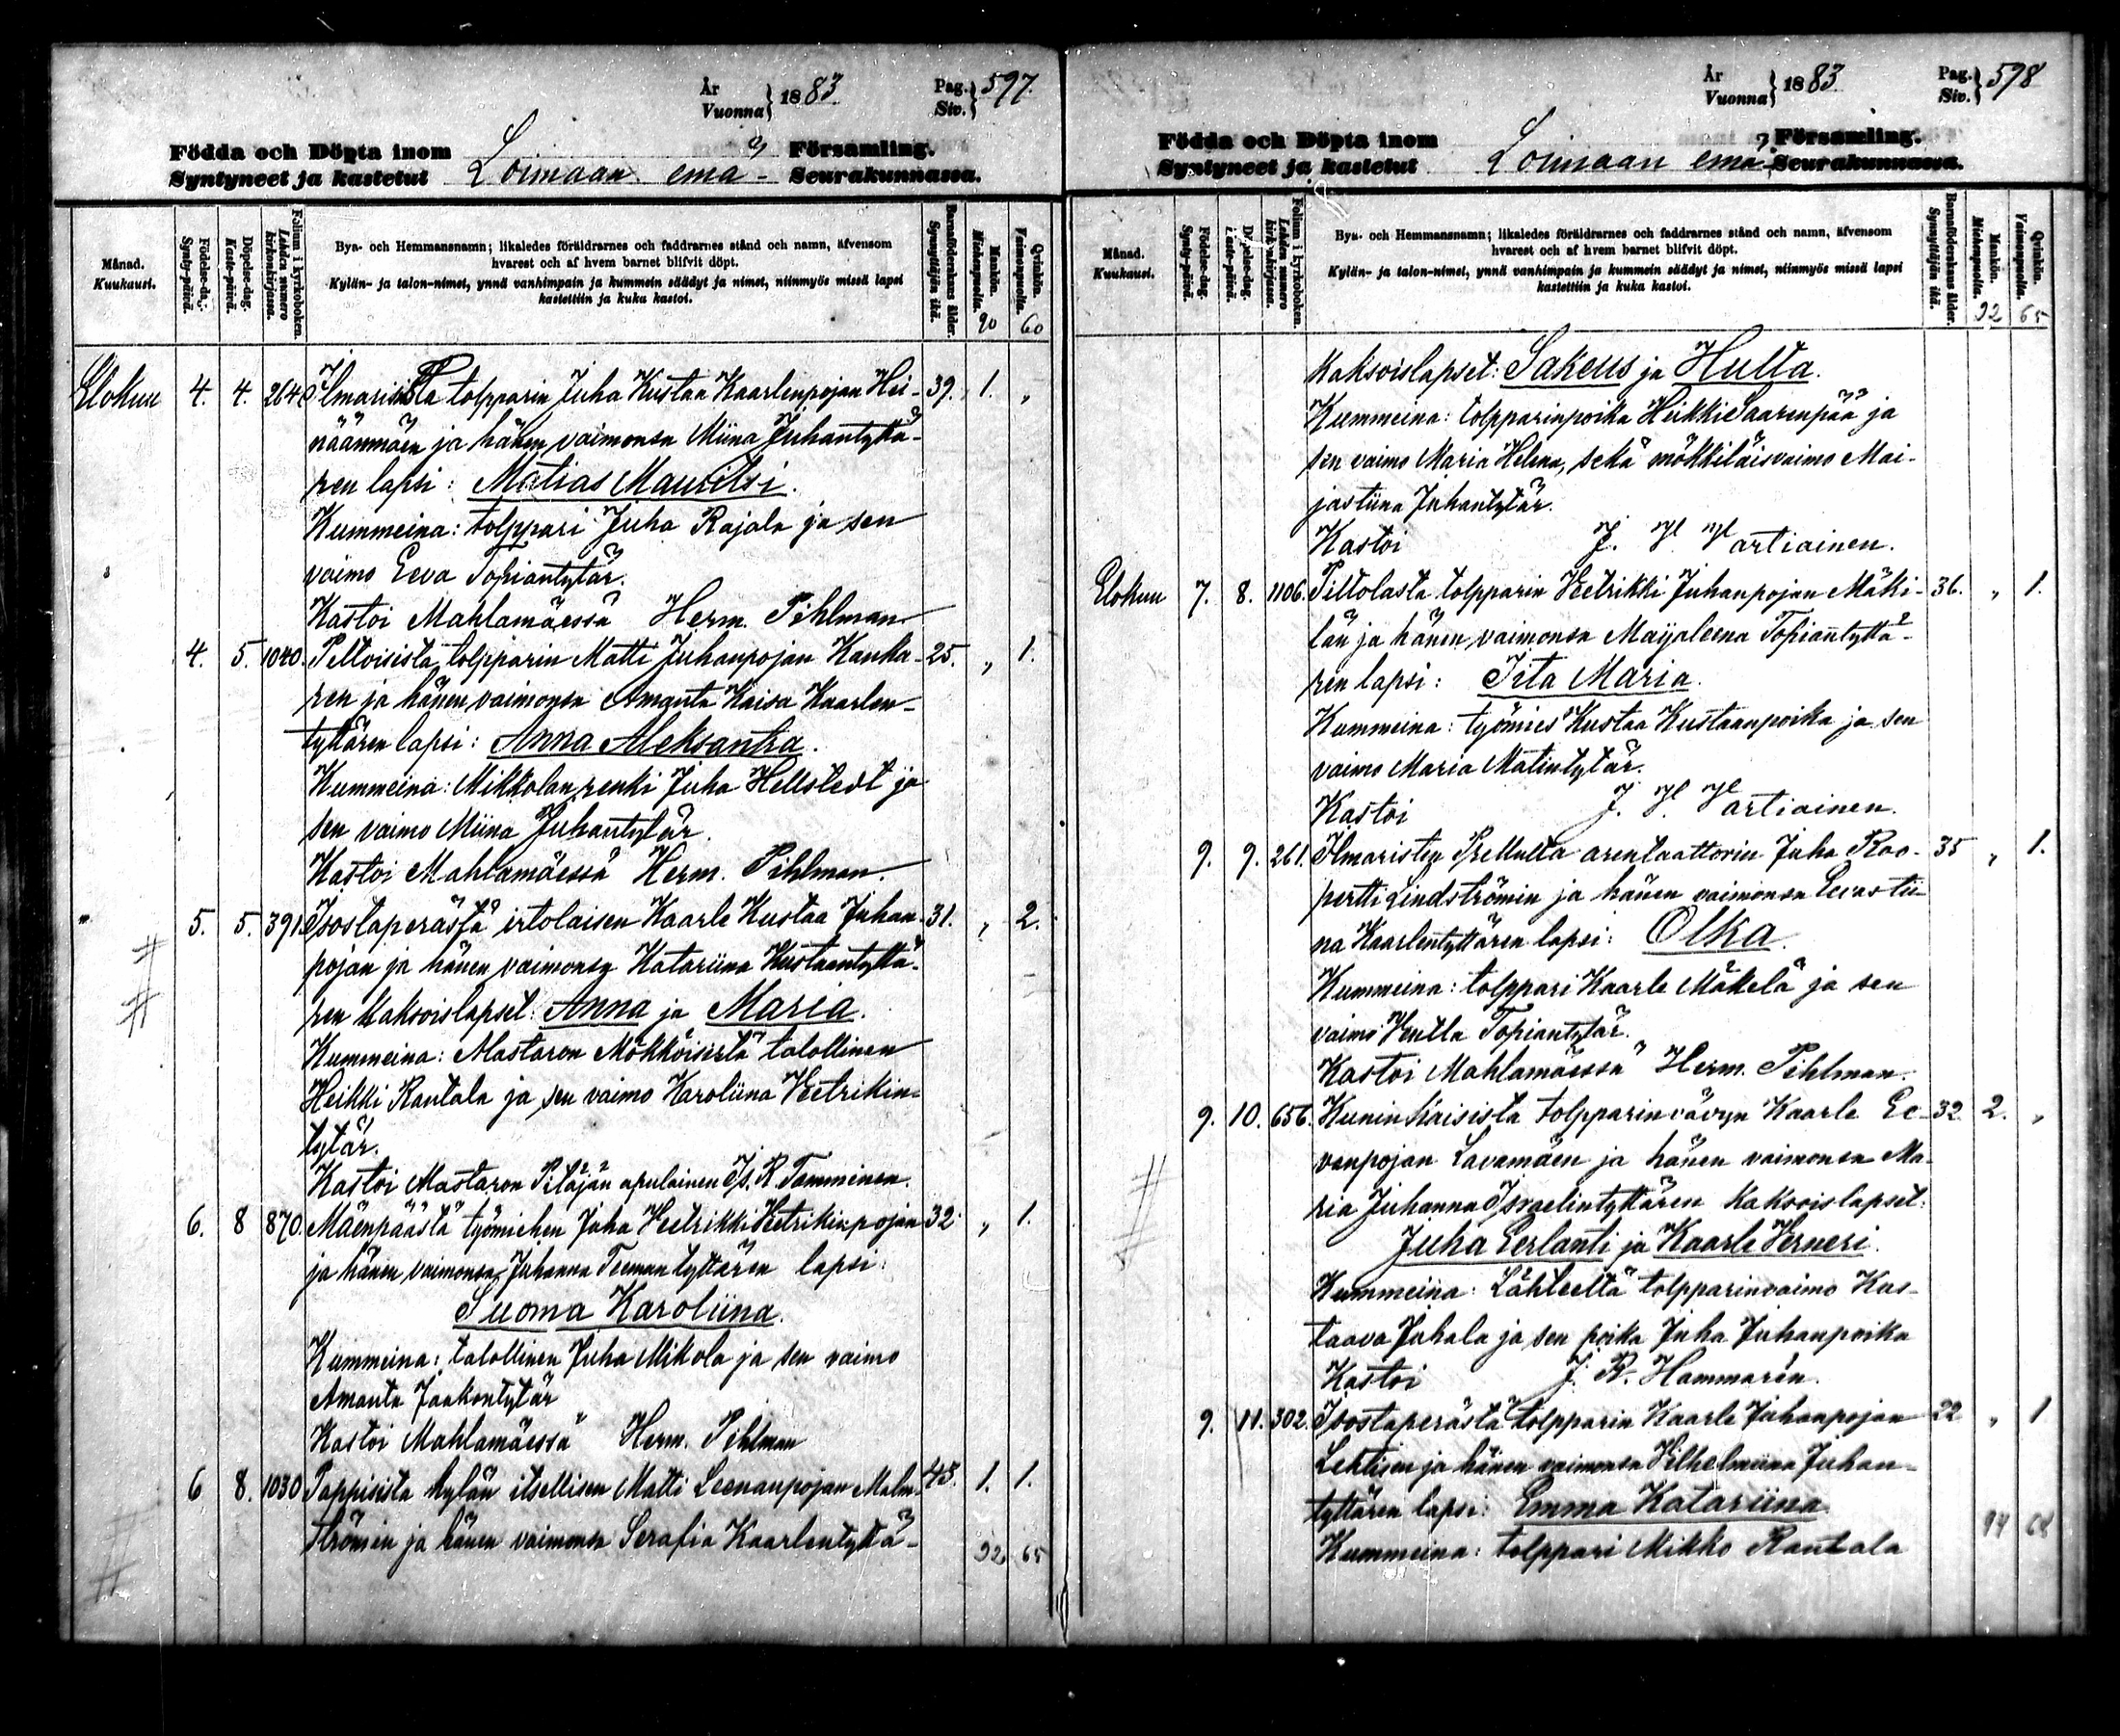 År
Vuonna } 1883.
Pag.
Siv. } 597.
Födda och Döpta inom
Syntyneet ja kastetut
Loimaan emä-
Församling.
Seurakunnassa.
Månad.
Kuukausi.
Födelse-dag.
Synty-päivä.
Döpelse-dag.
Kaste-päivä.
Folium i kyrkoboken.
Lehden numero kirkonkirjassa.
Bya- och Hemmansnamn; likaledes föräldrarnes och faddrarnes stånd och namn, äfvensom
hvarest och af hvem barnet blifvit döpt.
Kylän- ja talon-nimet, ynnä vanhimpain ja kummein säädyt ja nimet, niinmyös missä lapsi
kastettiin ja kuka kastoi.
Barnaföderskans ålder.
Synnyttäjän ikä.
Mankön.
Miehenpuolia.
90
Qvinkön.
Vaimonpuolia.
60
Elokuu 4. 4. 264. Ilmarisista tolpparin Juha Kustaa Kaarlenpojan Hei- 39. 1. "
näänmäen ja hänen vaimonsa Miina Juhantyttä-
ren lapsi: Matias Mauritsi.
Kummeina: tolppari Juha Rajala ja sen
vaimo Eeva Topiantytär.
Kastoi Mahlamäessä Herm. Pihlman
4. 5. 1040. Peltoisista tolpparin Matti Juhanpojan Kanka- 25. " 1.
ren ja hänen vaimonsa Amanta Kaisa Kaarlen-
tyttären lapsi: Anna Aleksantra.
Kummeina: Mikkolan renki Juha Hellstedt ja
sen vaimo Miina Juhantytär.
Kastoi Mahlamäessä Herm. Pihlman.
5. 5. 391. Isostaperästä irtolaisen Kaarle Kustaa Juhan- 31. " 2.
pojan ja hänen vaimonsa Katariina Kustaantyttä-
ren kaksoislapset: Anna ja Maria.
Kummeina: Alastaron Mökköisistä talollinen
Heikki Rantala ja sen vaimo Karoliina Veetrikin-
tytär.
Kastoi Alastaron Pitäjän apulainen Is. R. Tamminen.
6. 8 870. Mäenpäästä työmiehen Juha Veetrikki Veetrikinpojan 32. " 1.
ja hänen vaimonsa Juhanna Teemantyttären lapsi:
Suoma Karoliina.
Kummeina: talollinen Juha Mikola ja sen vaimo
Amanta Jaakontytär
Kastoi Mahlamäessä Herm. Pihlman
6 8. 1030 Pappisista kylän itsellisen Matti Leenanpojan Malm- 43. 1. 1.
strömin ja hänen vaimonsa Serafia Kaarlentyttä-
92 65
År
Vuonna } 1883.
Pag.
Siv. } 598
Födda och Döpta inom
Syntyneet ja kastetut
Loimaan emä-
Församling.
Seurakunnassa.
Månad.
Kuukausi.
Födelse-dag.
Synty-päivä.
Döpelse-dag.
Kaste-päivä.
Folium i kyrkoboken.
Lehden numero kirkonkirjassa.
Bya- och Hemmansnamn; likaledes föräldrarnes och faddrarnes stånd och namn, äfvensom
hvarest och af hvem barnet blifvit döpt.
Kylän- ja talon-nimet, ynnä vanhimpain ja kummein säädyt ja nimet, niinmyös missä lapsi
kastettiin ja kuka kastoi.
Barnaföderskans ålder.
Synnyttäjän ikä.
Mankön.
Miehenpuolia.
92
Qvinkön.
Vaimonpuolia.
65
kaksoislapset: Sakeus ja Hulta.
Kummeina: tolpparinpoika Heikki Saarenpää ja
sen vaimo Maria Helena, sekä mökkiläisvaimo Mai-
jastiina Juhantytär.
Kastoi J. H. Vartiainen.
Elokuu 7. 8. 1106. Piltolasta tolpparin Veetrikki Juhanpojan Mäki- 36. " 1.
län ja hänen vaimonsa Maijaleena Topiantyttä-
ren lapsi: Iita Maria.
Kummeina: työmies Kustaa Kustaanpoika ja sen
vaimo Maria Matintytär.
Kastoi J. H. Vartiainen.
9. 9. 261. Ilmaristen Prellulta arentaattorin Juha Roo- 35 " 1.
pertti Lindströmin ja hänen vaimonsa Eevastii-
na Kaarlentyttären lapsi: Olka.
Kummeina: tolppari Kaarle Mäkelä ja sen
vaimo Ventla Topiantytär.
Kastoi Mahlamäessä Herm. Pihlman.
9. 10. 656. Kuninkaisista tolpparinvävyn Kaarle Ee- 32. 2. "
vanpojan Lavamäen ja hänen vaimonsa Ma-
ria Juhanna Israelintyttären kaksoislapset:
Juha Eerlanti ja Kaarle Verneri.
Kummeina: Lähteeltä tolpparinvaimo Kus-
taava Juhala ja sen poika Juha Juhanpoika
Kastoi J. R. Hammarén.
9. 11. 302. Isostaperästä tolpparin Kaarle Juhanpojan 22 " 1
Lehtisen ja hänen vaimonsa Vilhelmiina Juhan-
tyttären lapsi: Emma Katariina.
Kummeina: tolppari Mikko Rantala
94 68